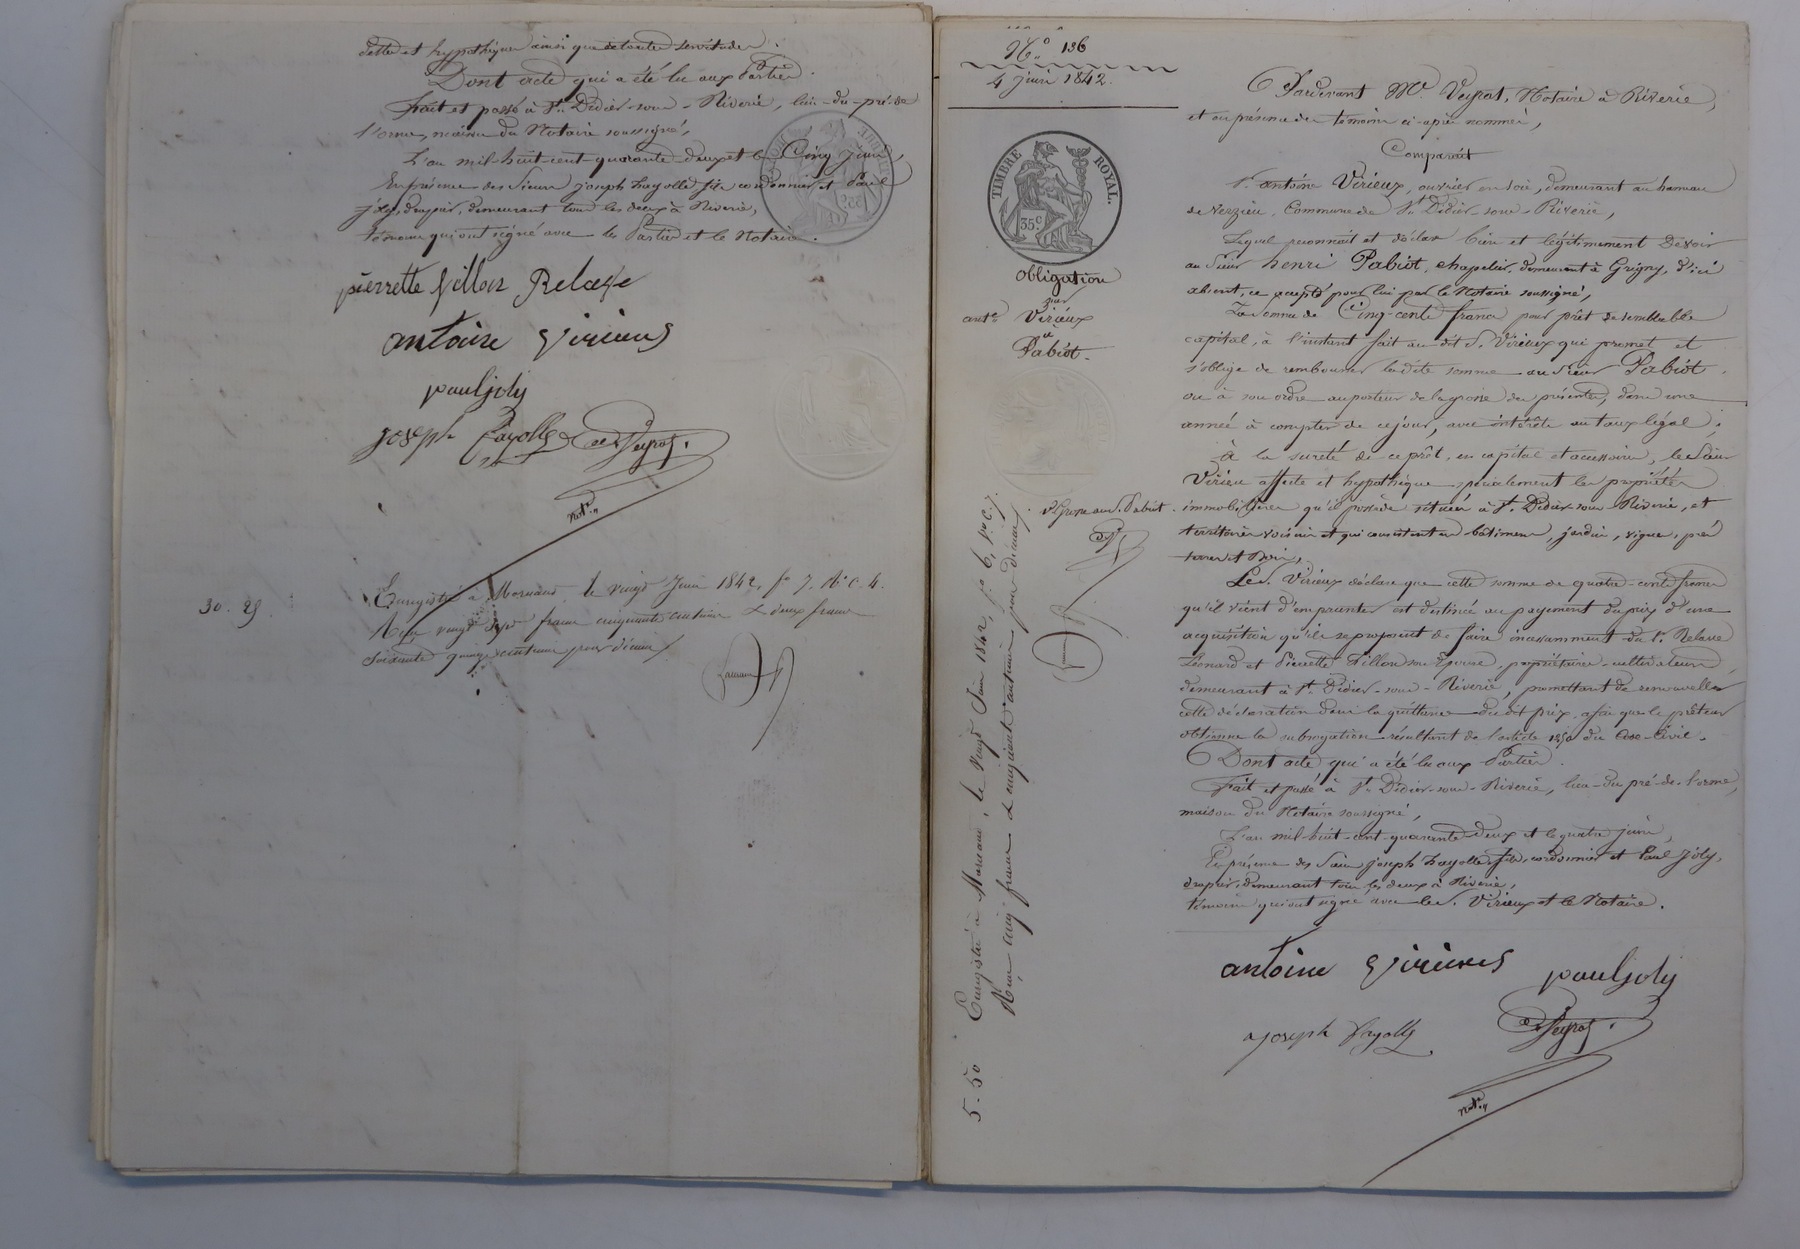 dette et hypothèque ainsi que de toute servitude.
Dont acte qui a été lu aux Parties.
Fait et passé à St. Didier-sous-Riverie, lieu-du-pré-de
l'orme, maison du Notaire soussigné,
L'an mil-huit-cent-quarante-deux et le Cinq Juin,
En présence des Sieurs joseph fayolle, fils, cordonnier et Paul
joly, drapier, demeurant tous les deux à Riverie,
témoins qui ont signé avec les Parties et le Notaire.
pierrette fillon Relave
antoine Virieux
paul joly
joseph fayolle Veyrat
not.re
Enregistré à Mornant le vingt Juin 1842, fo 7. Ro C. 4.
Reçu vingt sept francs cinquante centimes & deux francs
soixante quinze centimes pour décime
30. 25
No. 136
4 juin 1842.
TIMBRE ROYAL.
35 c.
Obligation
par
ant.e Virieux
à
Pabiot.
dl. Grosse au s. Pabiot.
Enregistré à Mornant, le vingt Juin 1842, fo 6, Vo C. 7.
Reçu cinq francs & cinquante centimes pour décime
5. 50
Pardevant Me. Veyrat, Notaire à Riverie,
et en présence des témoins ci-après nommés,
Comparait
Sr. antoine Virieux, ouvrier en soie, demeurant au hameau
de Verzieu, Commune de St. Didier-sous-Riverie,
Lequel reconnait et déclare bien et légitimement Devoir
au Sieur henri Pabiot, chapelier, demeurant à Grigny, d'ici
absent, ce accepté pour lui par le Notaire soussigné,
La Somme de Cinq-cents francs pour prêt de semblable
capital, à l'instant fait au dit S. Virieux qui promet et
s'oblige de rembourser ladite somme au Sieur Pabiot
ou à son ordre au porteur de la grosse des présentes, dans une
année à compter de ce jour, avec intérêts au taux légal;
à la sureté de ce prêt, en capital et accessoires, le Sieur
Virieu affecte et hypothèque spécialement les propriétés
immobilières qu'il possède situées à St. Didier-sous-Riverie, et
territoires voisins et qui consistent en bâtiments, jardin, vigne, pré
terres et bois,
Le S. Virieux déclare que cette somme de quatre-cents francs
qu'il vient d'emprunter est destinée au payement du prix d'une
acquisition qu'il se proposent de faire incessamment du Sr. Relave
Léonard et Pierrette Fillon son Épouse, propriétaires-cultivateurs,
demeurant à St. Didier-sous-Riverie, promettant de renouveller
cette déclaration dans la quittance du dit prix, afin que le prêteur
obtienne la subrogation résultant de l'article 1250 du Code-Civil.
Dont acte qui a été lu aux Parties.
Fait et passé à St. Didier-sous-Riverie, lieu-du pré-de-l'orme,
maison du Notaire soussigné,
L'an mil-huit-cent-quarante-deux et le quatre juin,
En présence des Sieurs joseph fayolle fils, cordonnier et Paul Joly,
drapier, demeurant tous les deux à Riverie,
témoins qui ont signé avec le S. Virieux et le Notaire.
antoine Virieux paul joly
joseph fayolle Veyrat
not.re